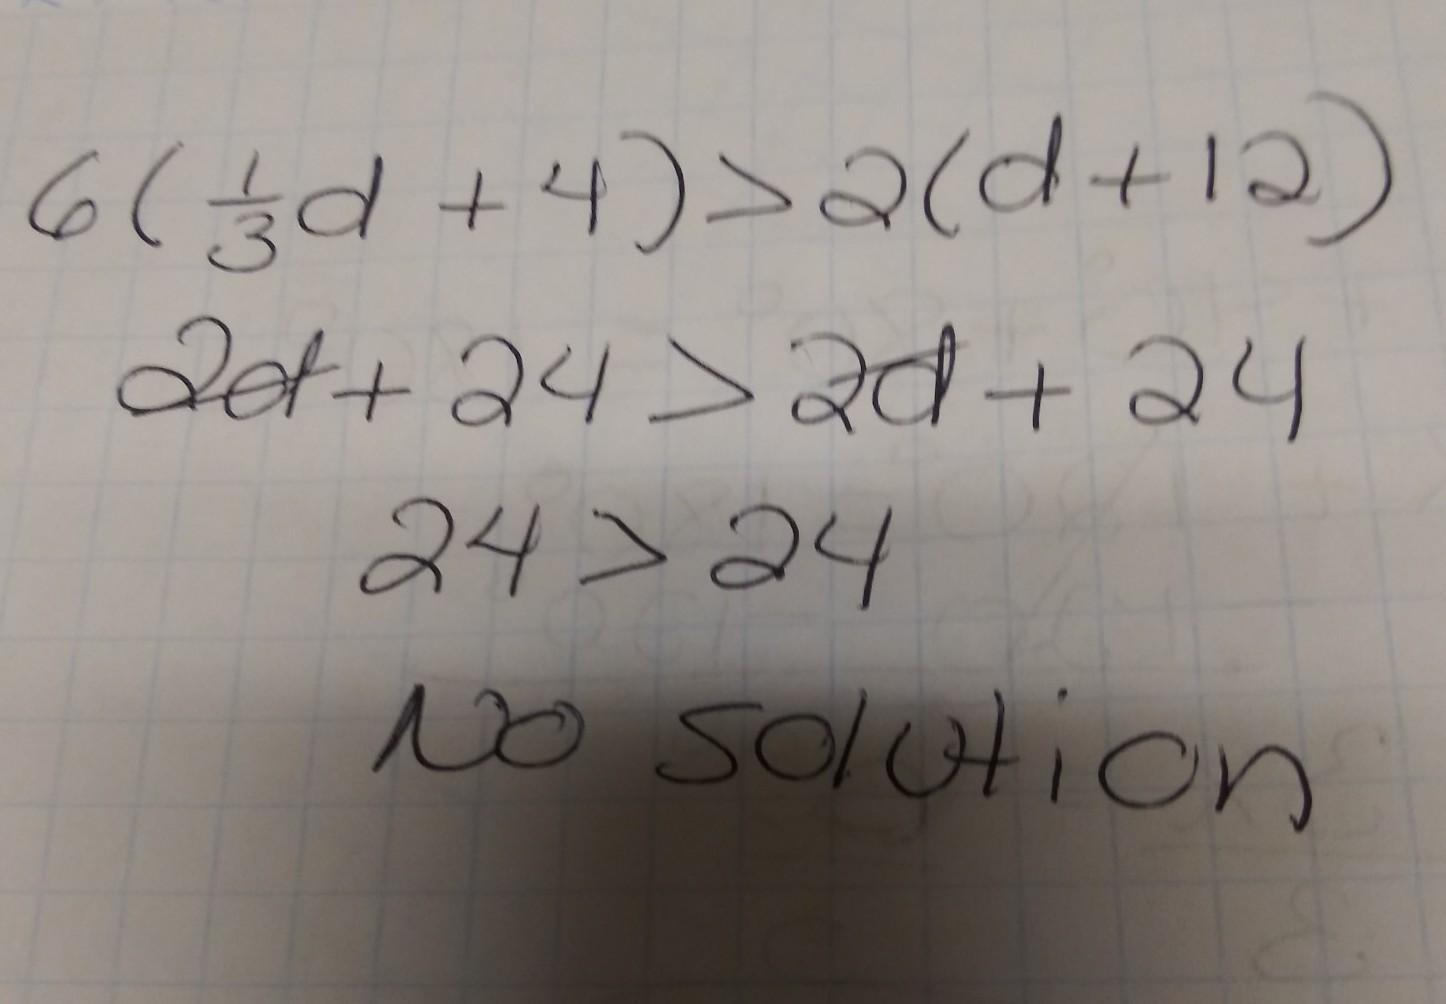 6(1/3d + 4) > 2(d + 12)
2d + 24 > 2d + 24
24 > 24
No solution